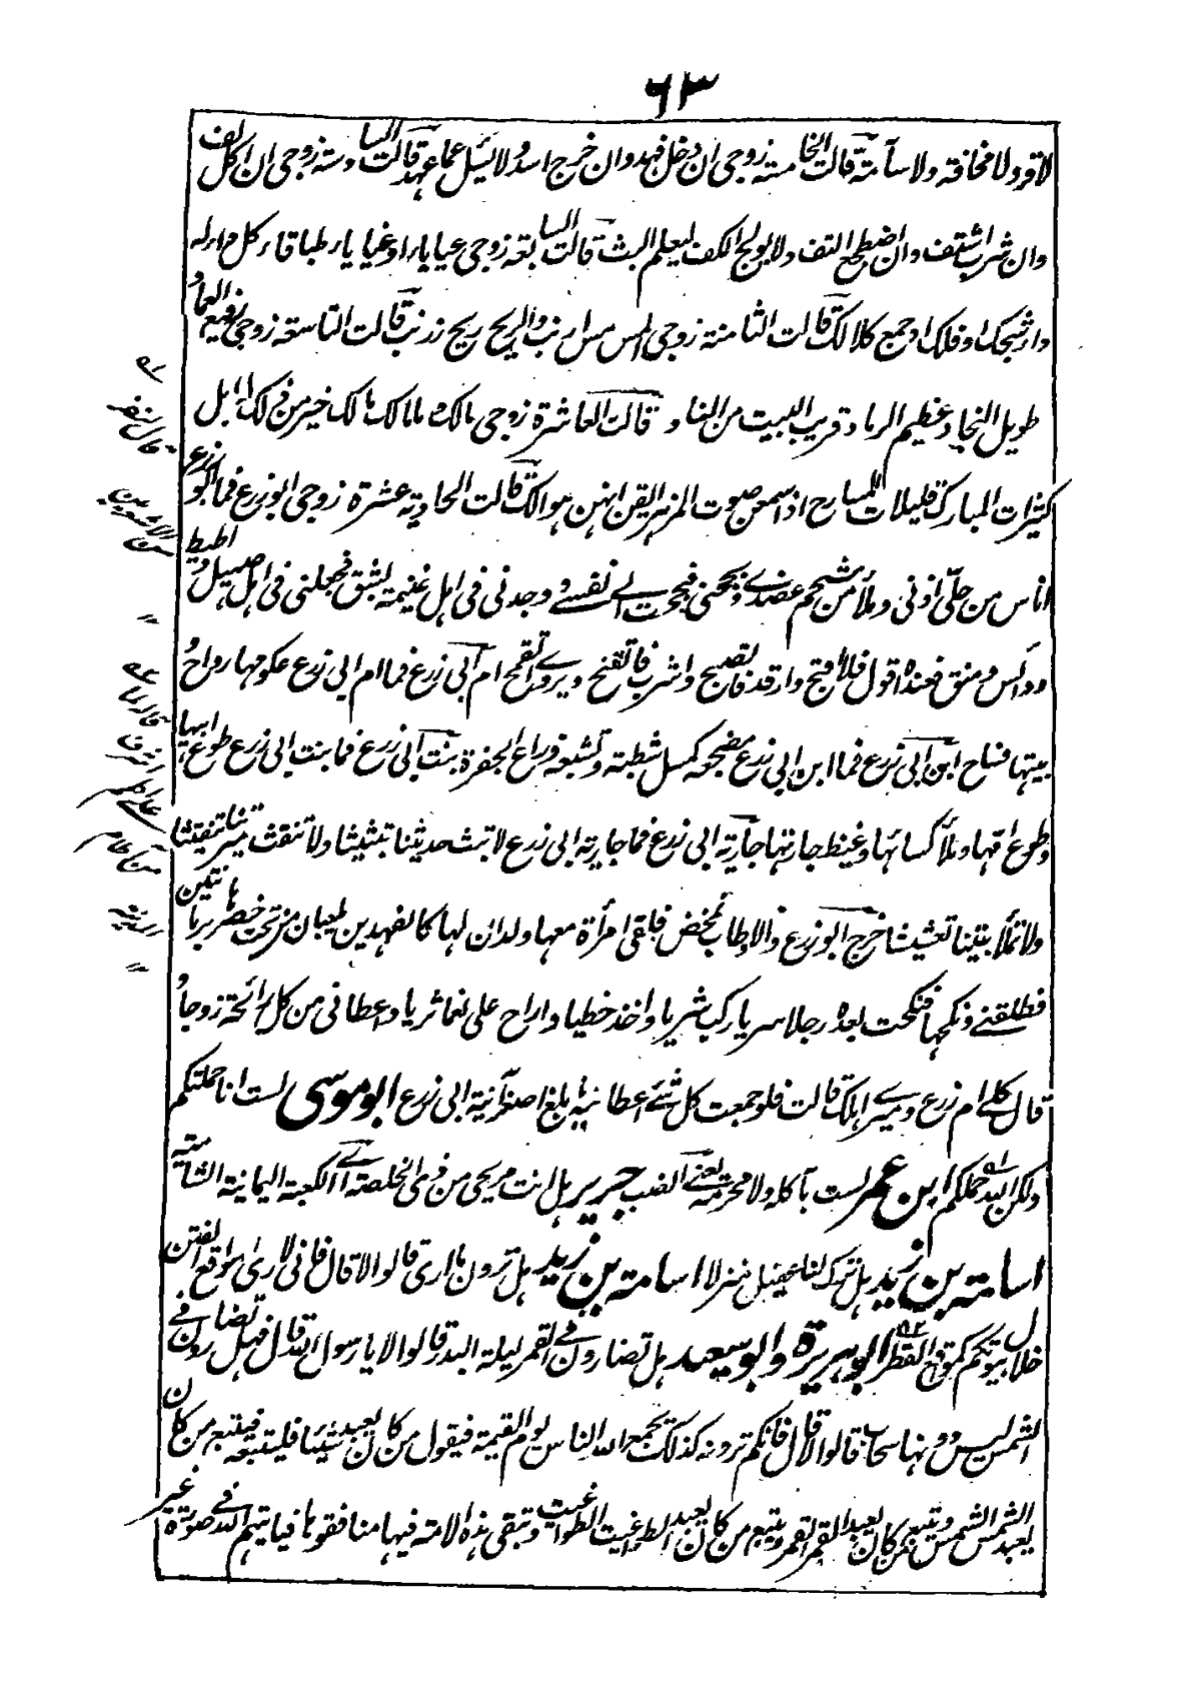 ٦٣
لا قر ولا مخافة ولا سآمة قالت الخامسة زوجى ان دخل فهد وان خرج اسد ولا يسئل عما عهد قالت السادسة زوجى ان اكل لف
وان شرب اشتف وان اضطجع التف ولا يولج الكف ليعلم البث قالت السابعة زوجى عياياء او غياياء طباقاء كل داء له
داء شجك او فلك او جمع كلا لك قالت الثامنة زوجى المس مس ارنب والريح ريح زرنب قالت التاسعة زوجى رفيع العماد
طويل النجاد عظيم الرماد قريب البيت من الناد قالت العاشرة زوجى مالك وما مالك مالك خير من ذلك له ابل
كثيرات المبارك قليلات المسارح اذا سمعن صوت المزهر ايقن انهن هوالك قالت الحادية عشرة زوجى ابو زرع فما ابو زرع
اناس من حلى اذنى وملأ من شحم عضدى وبجحنى فبجحت الى نفسى وجدنى فى اهل غنيمة بشق فجعلنى فى اهل صهيل واطيط
ودائس ومنق فعنده اقول فلا اقبح وارقد فاتصبح واشرب فاتقنح ويروى فاتقمح ام ابى زرع فما ام ابى زرع عكومها رداح و
بيتها فساح ابن ابى زرع فما ابن ابى زرع مضجعه كمسل شطبة وتشبعه ذراع الجفرة بنت ابى زرع فما بنت ابى زرع طوع ابيها
وطوع امها وملأ كسائها وغيظ جارتها جارية ابى زرع فما جارية ابى زرع لا تبث حديثنا تبثيثا ولا تنقث ميرتنا تنقيثا
ولا تملأ بيتنا تعشيشا خرج ابو زرع والاوطاب تمخض فلقى امرأة معها ولدان لها كالفهدين يلعبان من تحت خصرها برمانتين
فطلقنى ونكحها فنكحت بعده رجلا سريا ركب شريا واخذ خطيا واراح على نعما ثريا واعطانى من كل رائحة زوجا و
قال كلى ام زرع وميرى اهلك قالت فلو جمعت كل شئ اعطانيه ما بلغ اصغر آنية ابى زرع ابو موسى لست انا حملتكم
ولكن الله حملكم ابن عمر لست بآكله ولا محرمه يعنى الضب جرير هل انت مريحى من ذى الخلصة اى الكعبة اليمانية الشامية
اسامة بن زيد هل ترك لنا عقيل منزلا اسامة بن زيد هل ترون ما ارى قالوا لا قال فانى لارى مواقع الفتن
خلال بيوتكم كموقع القطر ابو هريرة وابو سعيد هل تضارون فى القمر ليلة البدر قالوا لا يا رسول الله قال فهل تضارون فى
الشمس ليس دونها سحاب قالوا لا قال فانكم ترونه كذلك يجمع الله الناس يوم القيمة فيقول من كان يعبد شيئا فليتبعه فيتبع من كان
يعبد الشمس الشمس ويتبع من كان يعبد القمر القمر ويتبع من كان يعبد الطواغيت الطواغيت وتبقى هذه الامة فيها منافقوها فياتيهم الله فى صورة غير